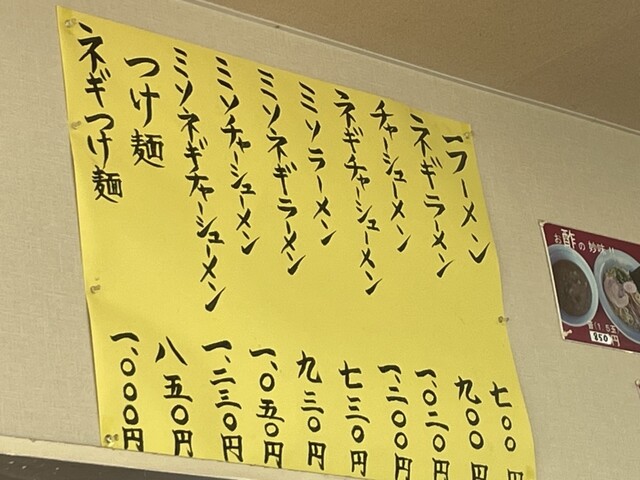 ラーメン 七〇〇円
ネギラーメン 九〇〇円
チャーシューメン 一、〇二〇円
ネギチャーシューメン 一、二〇〇円
ミソラーメン 七三〇円
ミソネギラーメン 九三〇円
ミソチャーシューメン 一、〇五〇円
ミソネギチャーシューメン 一、二三〇円
つけ麺 八五〇円
ネギつけ麺 一、〇〇〇円
お酢の妙味!!
(1.5玉
850円